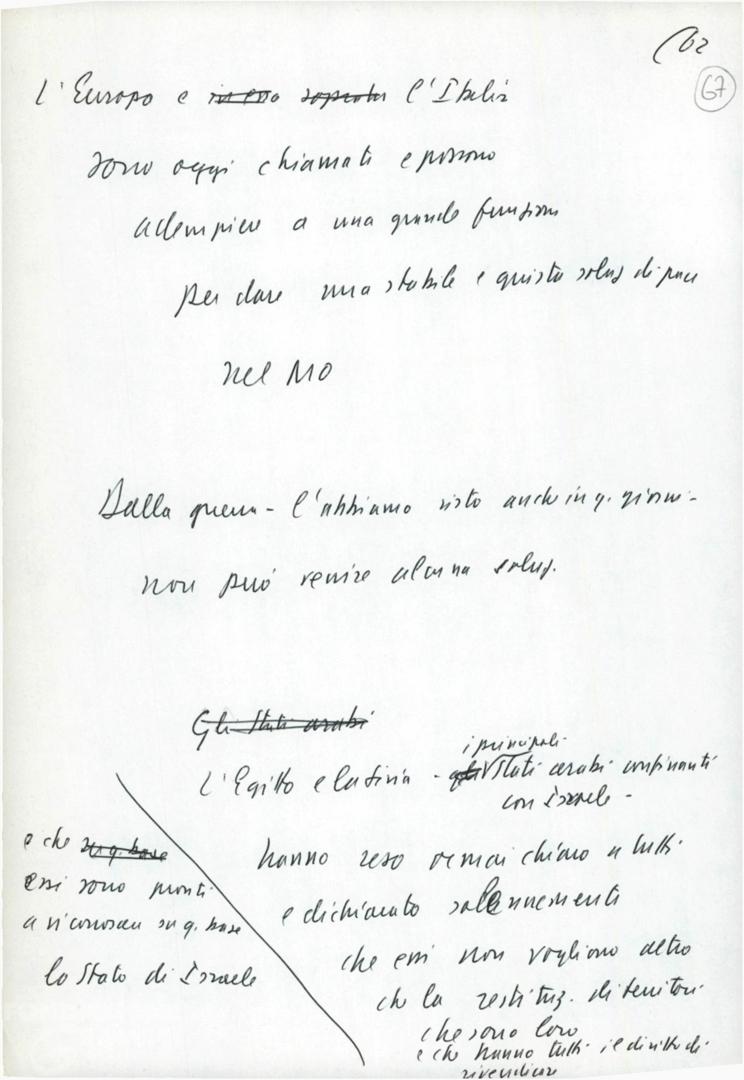 62
67
L'Europa e in essa soprattu l'Italia
sono oggi chiamati e possono
adempiere a una grande funzione
per dare una stabile e giusta soluz di pace
nel MO
Dalla guerra - l'abbiamo visto anche in q. giorni -
non può venire alcuna soluz.
Gli Stati arabi
i principali
L'Egitto e la Siria - gli Stati arabi confinanti
con Israele -
hanno reso ormai chiaro a tutti
e dichiarato solennemente
che essi non vogliono altro
che la restituz. di territori
che sono loro
e che hanno tutti il diritto di
rivendicare
e che su q. base
essi sono pronti
a riconoscere su q. base
lo Stato di Israele